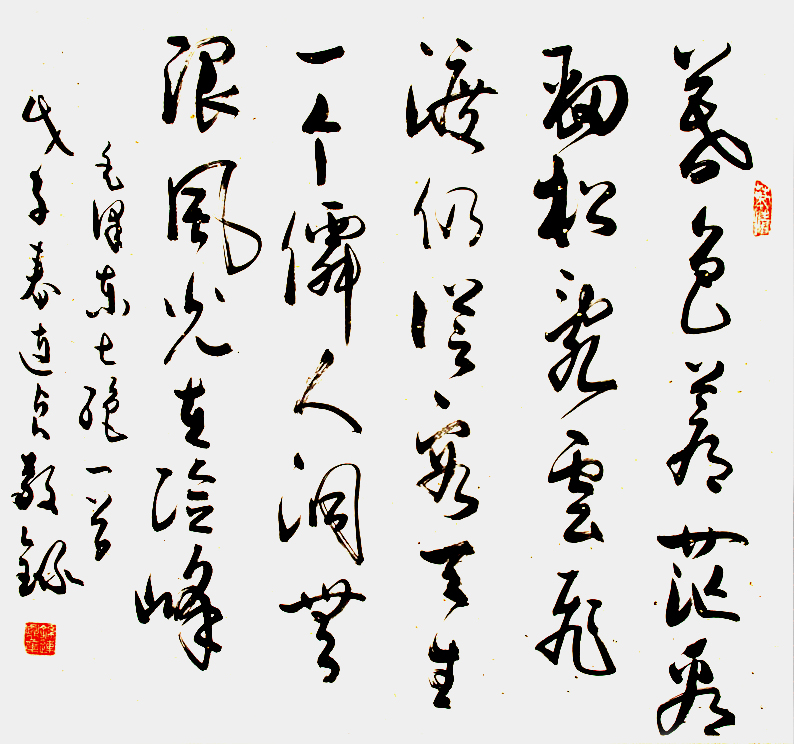 暮色蒼茫看
勁松亂雲飛
渡仍從容天生
一个僊人洞無
限風光在險峰
毛澤東七絕一首
戊子春連貞敬錄